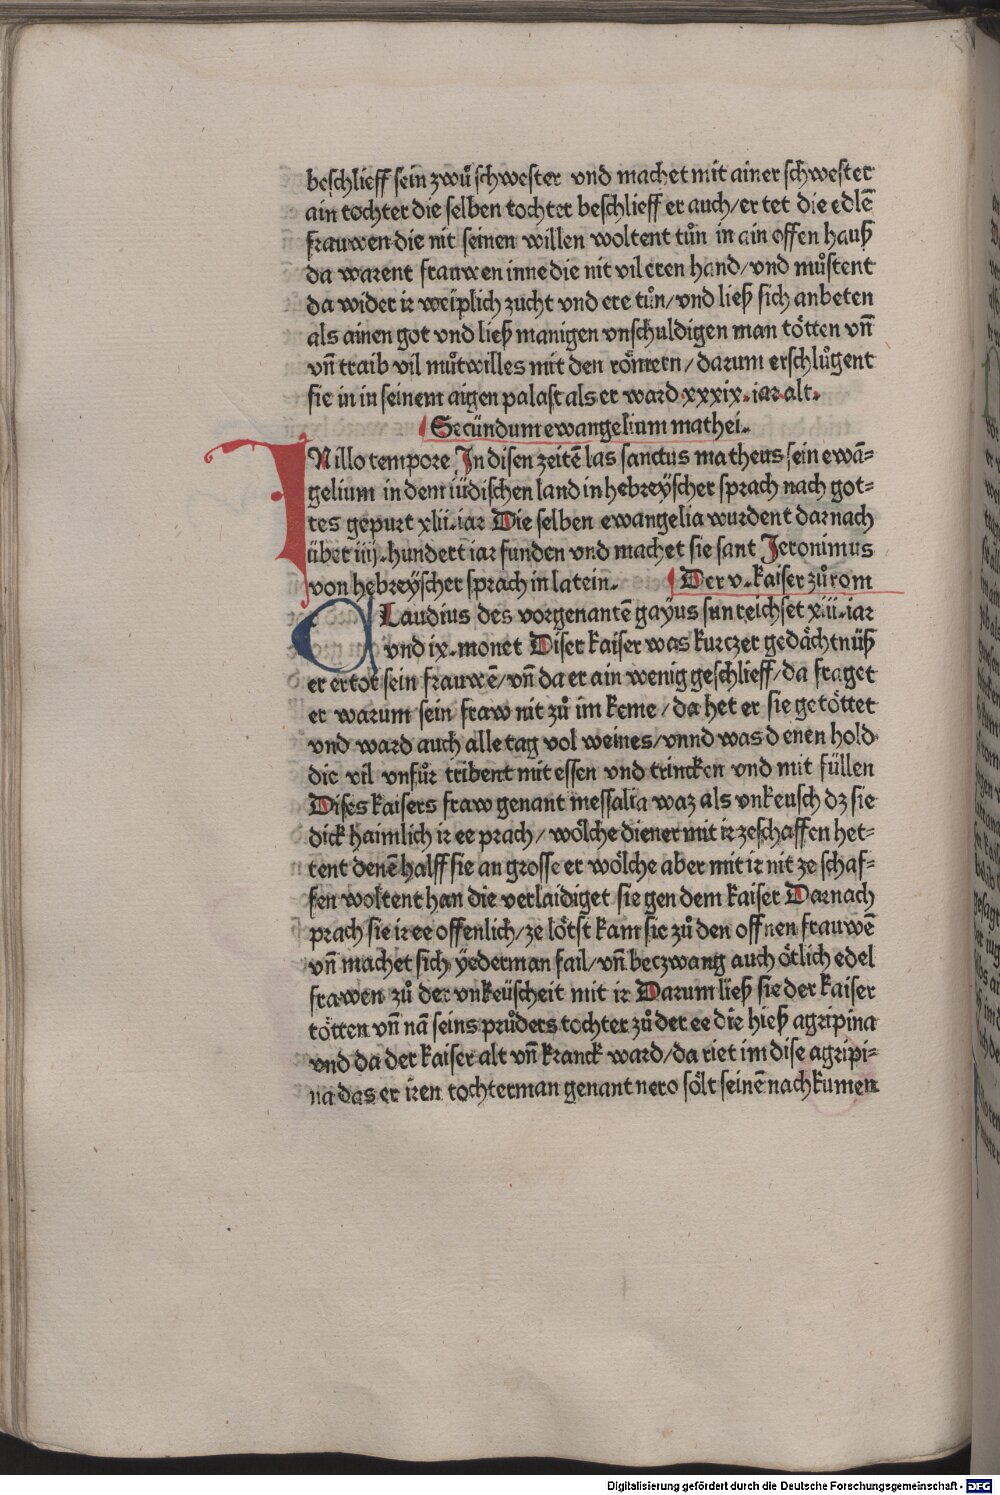 beschlieff sein zwů schwester vnd machet mit ainer schwester
ain tochter die selben tochter beschlieff er auch/er tet die edlē
frauwen die nit seinen willen woltent tůn in ain offen hauß
da warent frauwen inne die nit vil eren hand/vnd můstent
da wider ir weiplich zucht vnd ere tůn/vnd ließ sich anbeten
als ainen got vnd ließ manigen vnschuldigen man tötten vn̄
vn̄ traib vil můtwilles mit den römern/darum erschlůgent
sie in in seinem aigen palast als er ward xxxix.iar alt.
Secündum ewangelium mathei.
IN illo tempore In disen zeitē las sanctus matheus sein ewā=
gelium in dem iüdischen land in hebreÿscher sprach nach got=
tes gepurt xlii.iar Die selben ewangelia wurdent darnach
über iiij.hundert iar funden vnd machet sie sant Jeronimus
von hebreÿscher sprach in latein. Der v.kaiser zů rom
CLaudius des vorgenantē gaÿus sun reichset xiii.iar
vnd ix.monet Diser kaiser was kurczer gedächtnüß
er ertot sein frauwē/vn̄ da er ain wenig geschlieff/da fraget
er warum sein fraw nit zů im keme/da het er sie getöttet
vnd ward auch alle tag vol weines/vnnd was denen hold
die vil vnfůr tribent mit essen vnd trincken vnd mit füllen
Dises kaisers fraw genant messalia waz als vnkeusch dz sie
dick haimlich ir ee prach/wölche diener mit ir zeschaffen het=
tent denē halff sie an grosse er wölche aber mit ir nit ze schaf=
fen woltent han die verlaidiget sie gen dem kaiser Darnach
prach sie ir ee offenlich/ze lötst kam sie zů den offnen frauwē
vn̄ machet sich ÿederman fail/vn̄ beczwang auch ötlich edel
frawen zů der vnkeüscheit mit ir Darum ließ sie der kaiser
tötten vn̄ nā seins průders tochter zů der ee die hieß agripina
vnd da der kaiser alt vn̄ kranck ward/da riet im dise agripi=
na das er iren tochterman genant nero sölt seinē nachkumen
Digitalisierung gefördert durch die Deutsche Forschungsgemeinschaft - DFG